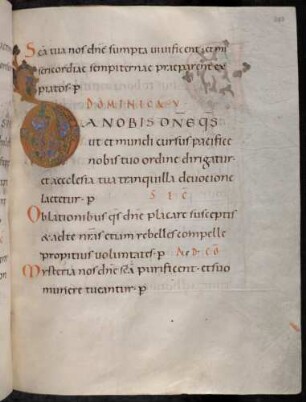 Sc̄a tua nos dn̄e sumpta uiuificent · et mi
sericordiae sempiternae praeparent ex
piatos · p̄
DOMINICA V
DA NOBIS DN̄E Q̄S
ut et mundi cursus pacifice
nobis tuo ordine dirigatur ·
et aecclesia tua tranquilla deuotione
laetetur · p̄
Oblationibus q̄s dn̄e placare susceptis
& ad te nr̄as etiam rebelles compelle
propitius uoluntates · p̄ AD CŌ
Mysteria nos dn̄e sc̄a purificent · et suo
munere tueantur · p̄